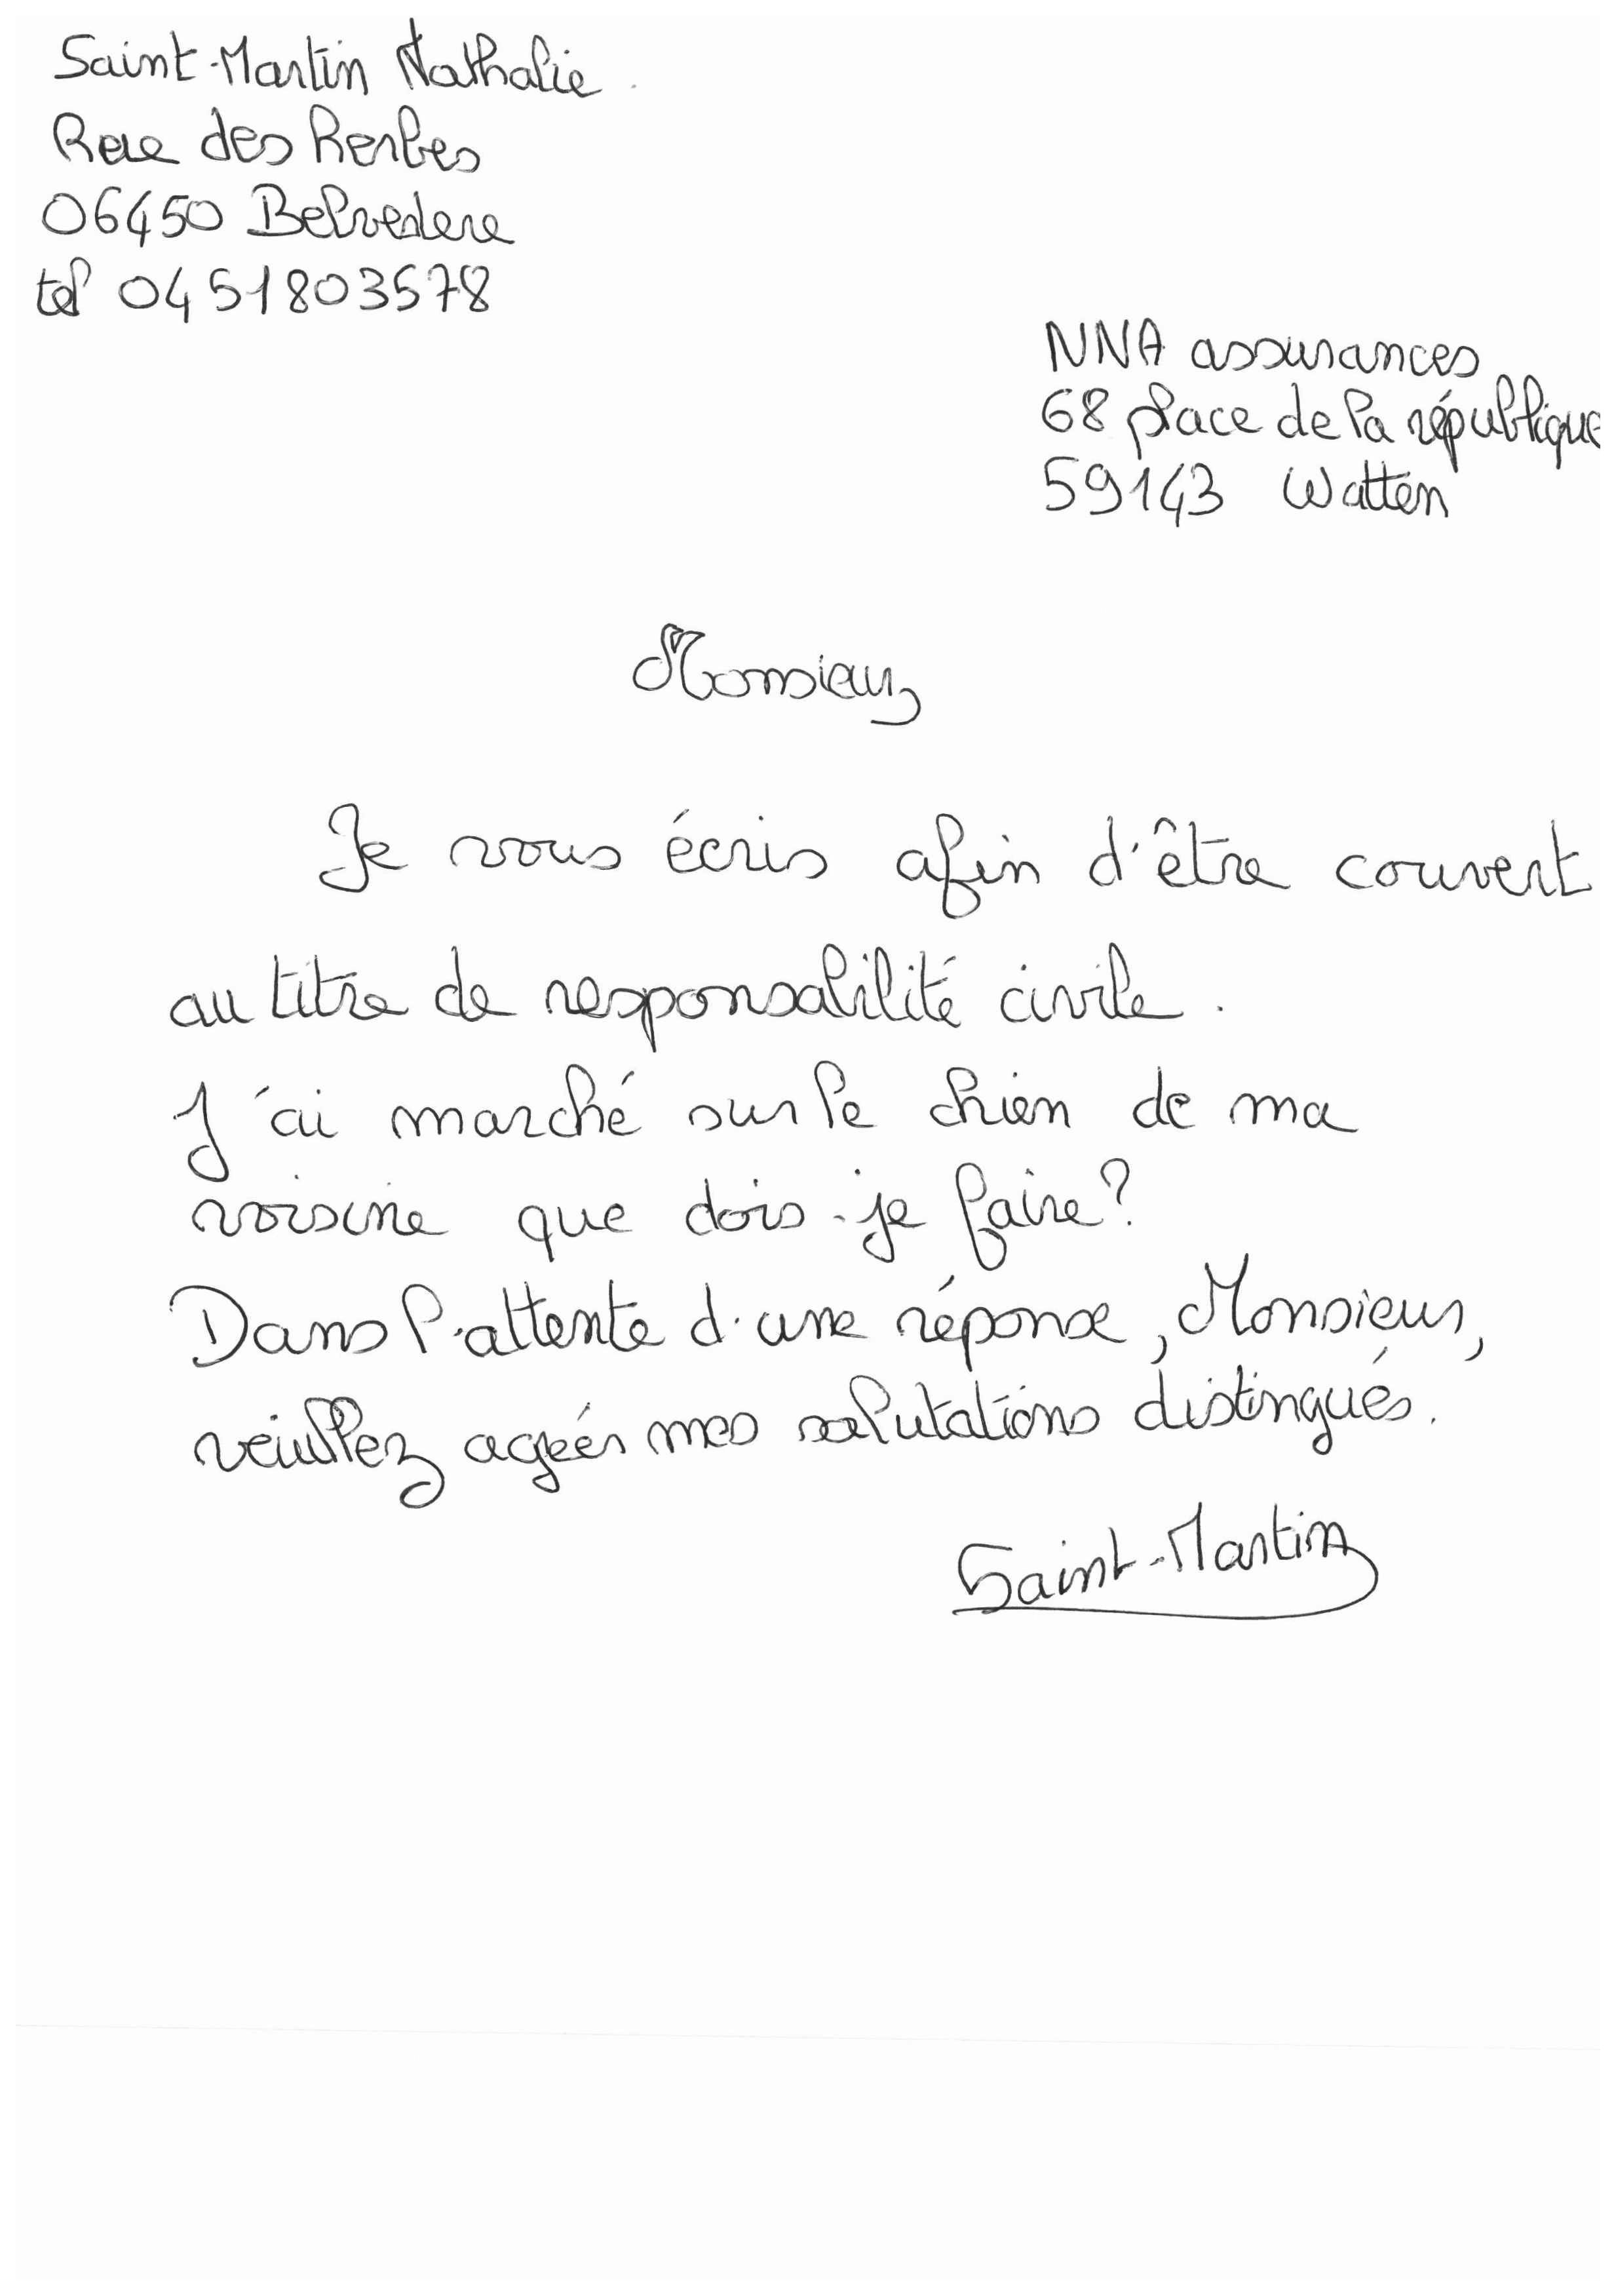 Saint-Martin Nathalie
Rue des Herbes
06450 Belvedere
tel 04 51803578
NNA assurances
68 place de la république
59143 Watten
Monsieur
Je vous écris afin d'être couvert
au titre de responsabilité civile.
J'ai marché sur le chien de ma
voisine que dois-je faire?
Dans l'attente d'une réponse, Monsieur,
veuillez agréér mes salutations distingués.
Saint-Martin